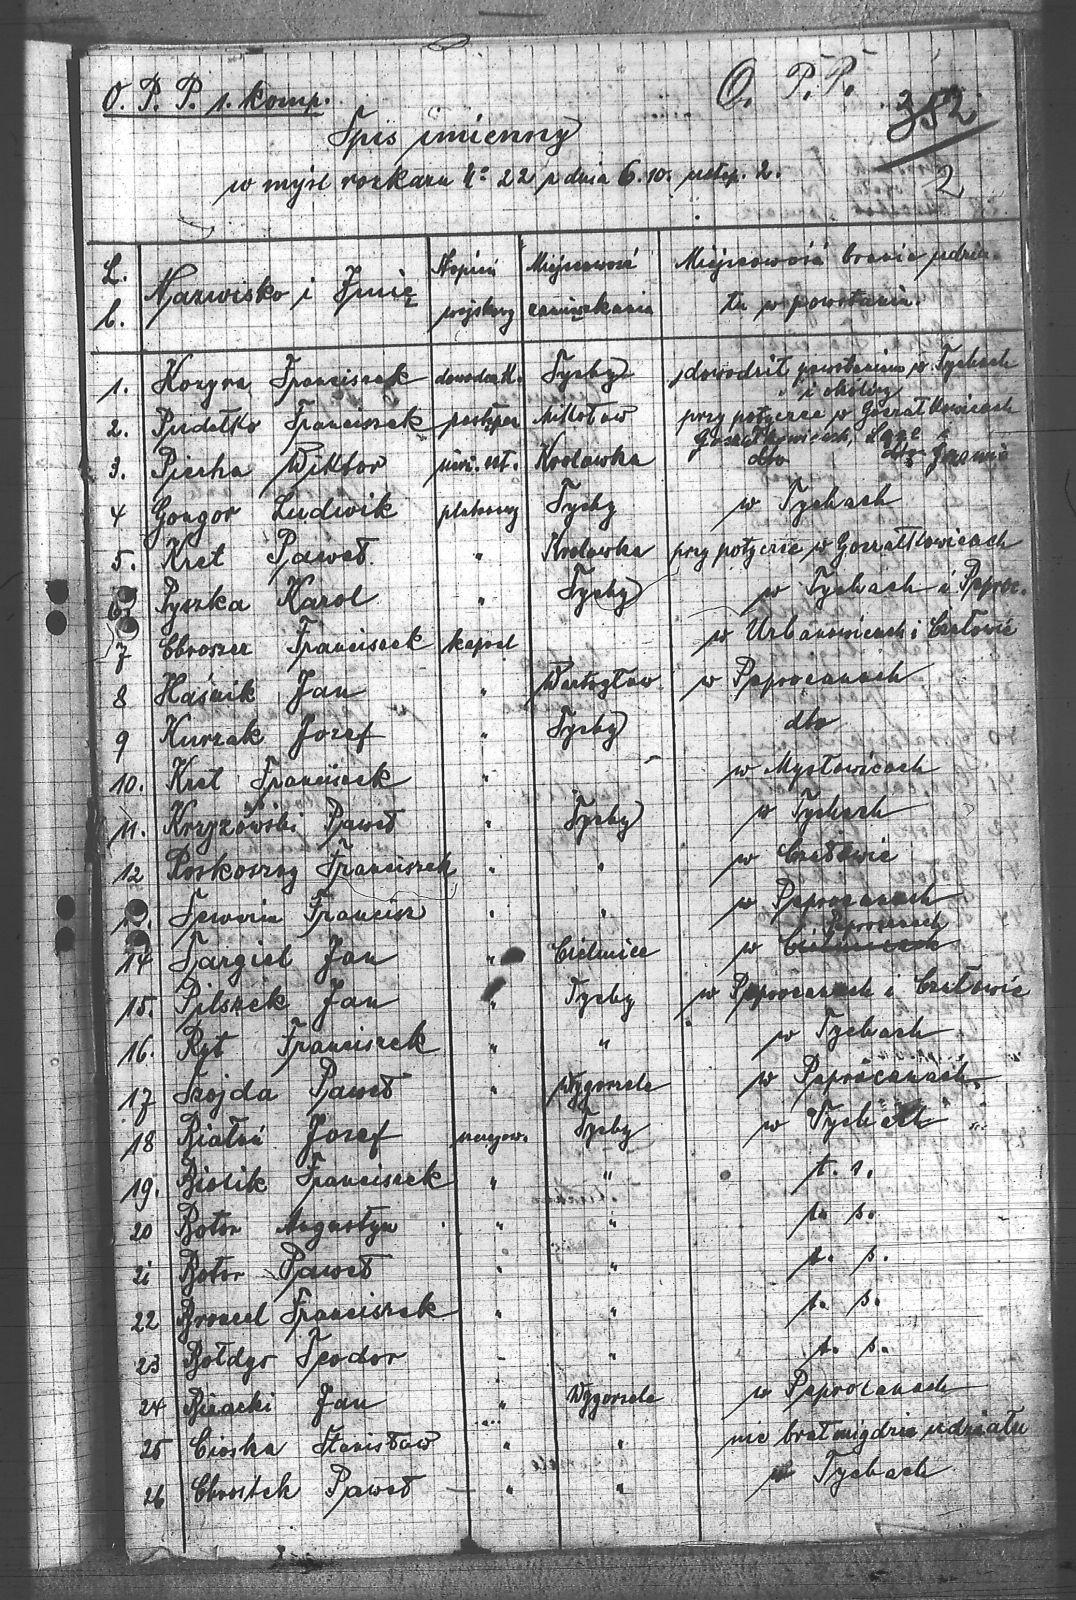 O. P. P. 1. komp.
O. P. P.
352
2
Spis imienny
w myśl rozkazu 22 z dnia 6. 10. ustęp. 2.
L. b. Nazwisko i Imię Stopień wojskowy Miejscowość zamieszkania Miejscowość brania udziału w powstaniu.
1. Kozyra Franciszek dowódca K. Tychy dowodził powstaniem w Tychach i okolicy
2. Pudełko Franciszek zastępca Mikołów przy potyczce w Gozałkowicach
3. Piecha Wiktor Krolawka Gozałkowicach, dto
4 Gongor Ludwik plutonowy Tychy w Tychach
5. Kret Paweł " Krolawka przy potyczce w Gozałkowicach
6. Pyszka Karol " Tychy w Tychach i Paproc.
7 Chroszcz Franciszek kaprol w Urbanowicach i Czułowie
8 Haśnik Jan " w Paprocanach
9 Kurzak Jozef " Tychy dto
10. Kret Franciszek " w Mysłowicach
11. Krzyżowski Paweł " Tychy w Tychach
12 Roskoszny Franciszek " " w Czułowie
13. Sewerin Francisz " " w Paprocanach
14 Targiel Jan " Cielmice w Paprocanach
15. Pilszek Jan " Tychy w Paprocanach i Czułowie
16. Ryt Franciszek " " w Tychach
17 Szojda Paweł " Wygorzele w Paprócanach
18 Białoń Jozef Tychy w Tychach
19. Biolik Franciszek " " t. s.
20 Botor Augustyn " " t. s.
21 Botor Paweł " " t. s.
22 Broncel Franciszek " " t. s.
23 Bołdys Teodor " " t. s.
24 Bieracki Jan " Wygorzele w Paprocanach
25 Cioska Stanisław " " nie brał nigdzie udziału
26 Chrostek Paweł " " w Tychach